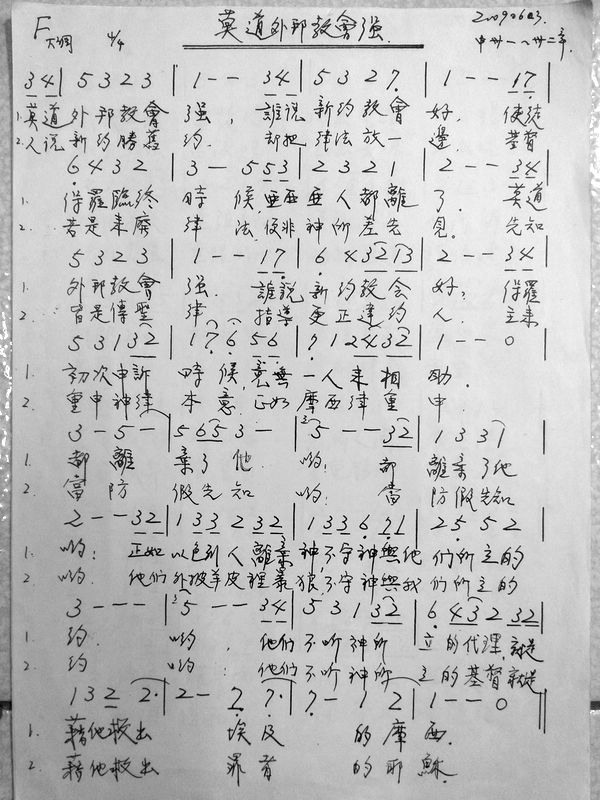 F大調 4/4 莫道外邦教會强 20090603
申卅一~卅二章
3 4 | 5 3 2 3 | 1 - - 3 4 | 5 3 2 7 | 1 - - 1 7 |
1. 莫道外邦教會强, 誰説新約教會好, 使徒
2. 人説新約勝舊約. 却把律法放一邊. 基督
6 4 3 2 | 3 - 5 5 3 | 2 3 2 1 | 2 - - 3 4 |
1. 保羅臨終時候, 亞西亞人都離了. 莫道
2. 若是來廢律法, 便非神所差先見. 先知
5 3 2 3 | 1 - - 1 7 | 6 4 3 2 1 3 | 2 - - 3 4 |
1. 外邦教會强. 誰説新約教会好; 保羅
2. 皆是傳聖律. 指導更正違約人. 主來
5 3 1 3 2 | 1 7 6 5 6 | 7 1 2 4 3 2 | 1 - - 0 |
1. 初次申訴時候, 竟無一人來相助.
2. 重申神律本意, 正如摩西律重申.
3 - 5 - | 5 6 5 3 - | 5 - - 3 2 | 1 3 3 1 |
1. 都離棄了他. 喲: 都離棄了他
2. 當防假先知 喲: 當防假先知
2 - - 3 2 | 1 3 3 2 3 2 | 1 3 3 6 7 1 | 2 5 5 2 |
1. 喲: 正如以色列人離棄神不守神與他們所立的
2. 喲. 他們外披羊皮裡裹狼不守神與我們所立的
3 - - - | 5 - - 3 4 | 5 3 1 3 2 | 6 4 3 2 3 2 |
1. 約. 喲, 他們不听神所立的代理, 就是
2. 約 喲: 他們不听神所立的基督, 就是
1 3 2 2· | 2 - - 2 7· | 7 - 1 2 | 1 - - 0 ‖
1. 藉他救出埃及的摩西.
2. 藉他救出罪苦的耶穌.